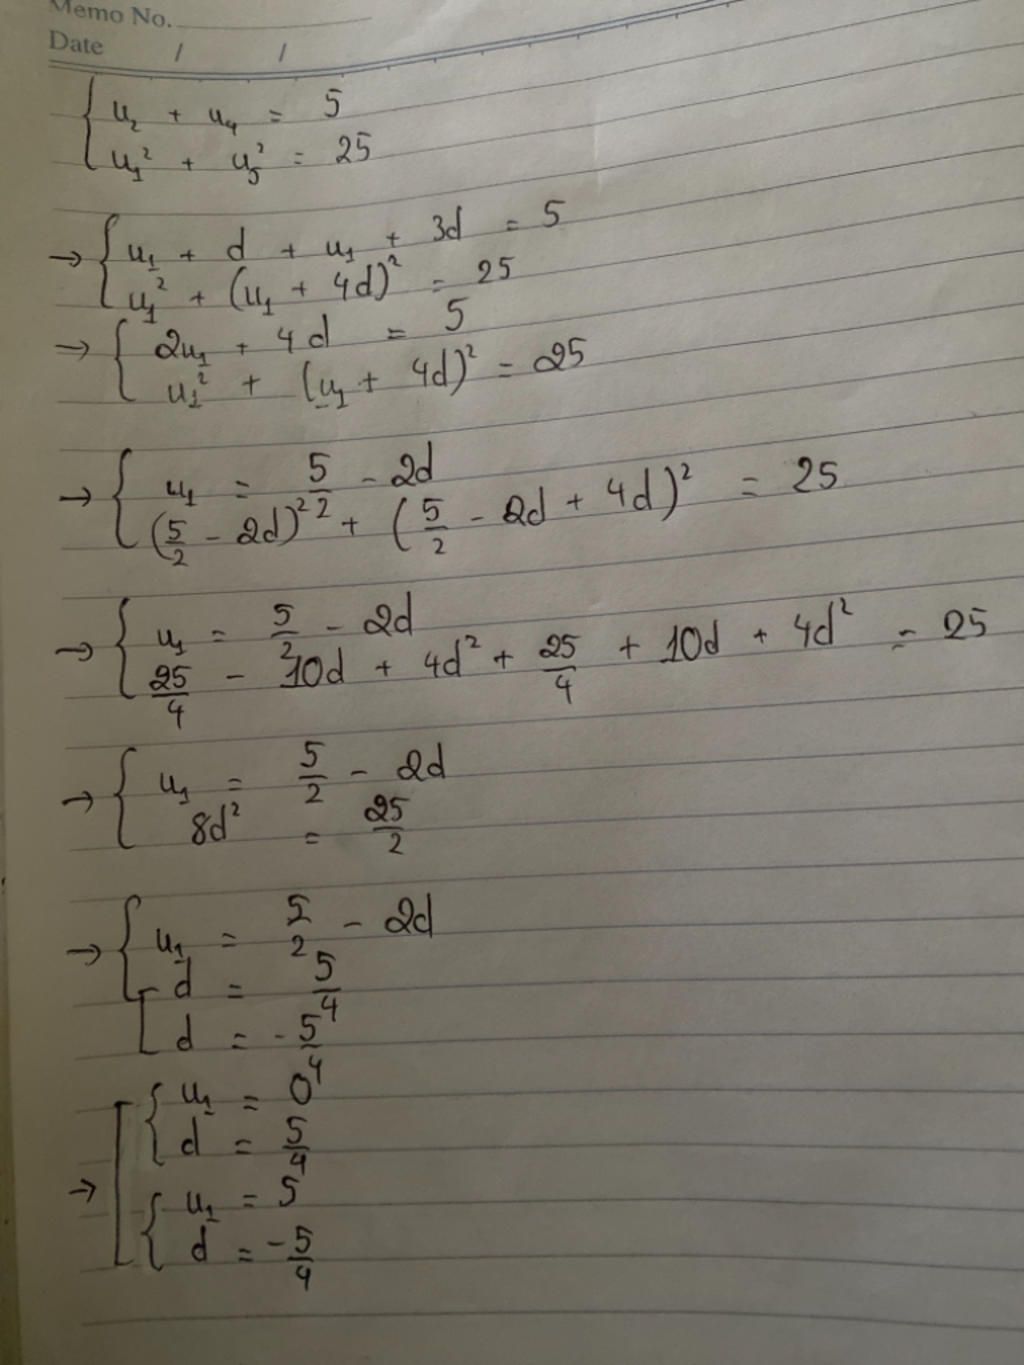 Memo No.
Date / /
{ u₂ + u₄ = 5
u₁² + u₅² = 25
→ { u₁ + d + u₁ + 3d = 5
u₁² + (u₁ + 4d)² = 25
→ { 2u₁ + 4d = 5
u₁² + (u₁ + 4d)² = 25
→ { u₁ = 5/2 - 2d
(5/2 - 2d)² + (5/2 - 2d + 4d)² = 25
→ { u₁ = 5/2 - 2d
25/4 - 10d + 4d² + 25/4 + 10d + 4d² = 25
→ { u₁ = 5/2 - 2d
8d² = 25/2
→ { u₁ = 5/2 - 2d
[ d = 5/4
d = -5/4
→ [ { u₁ = 0
d = 5/4
{ u₁ = 5
d = -5/4